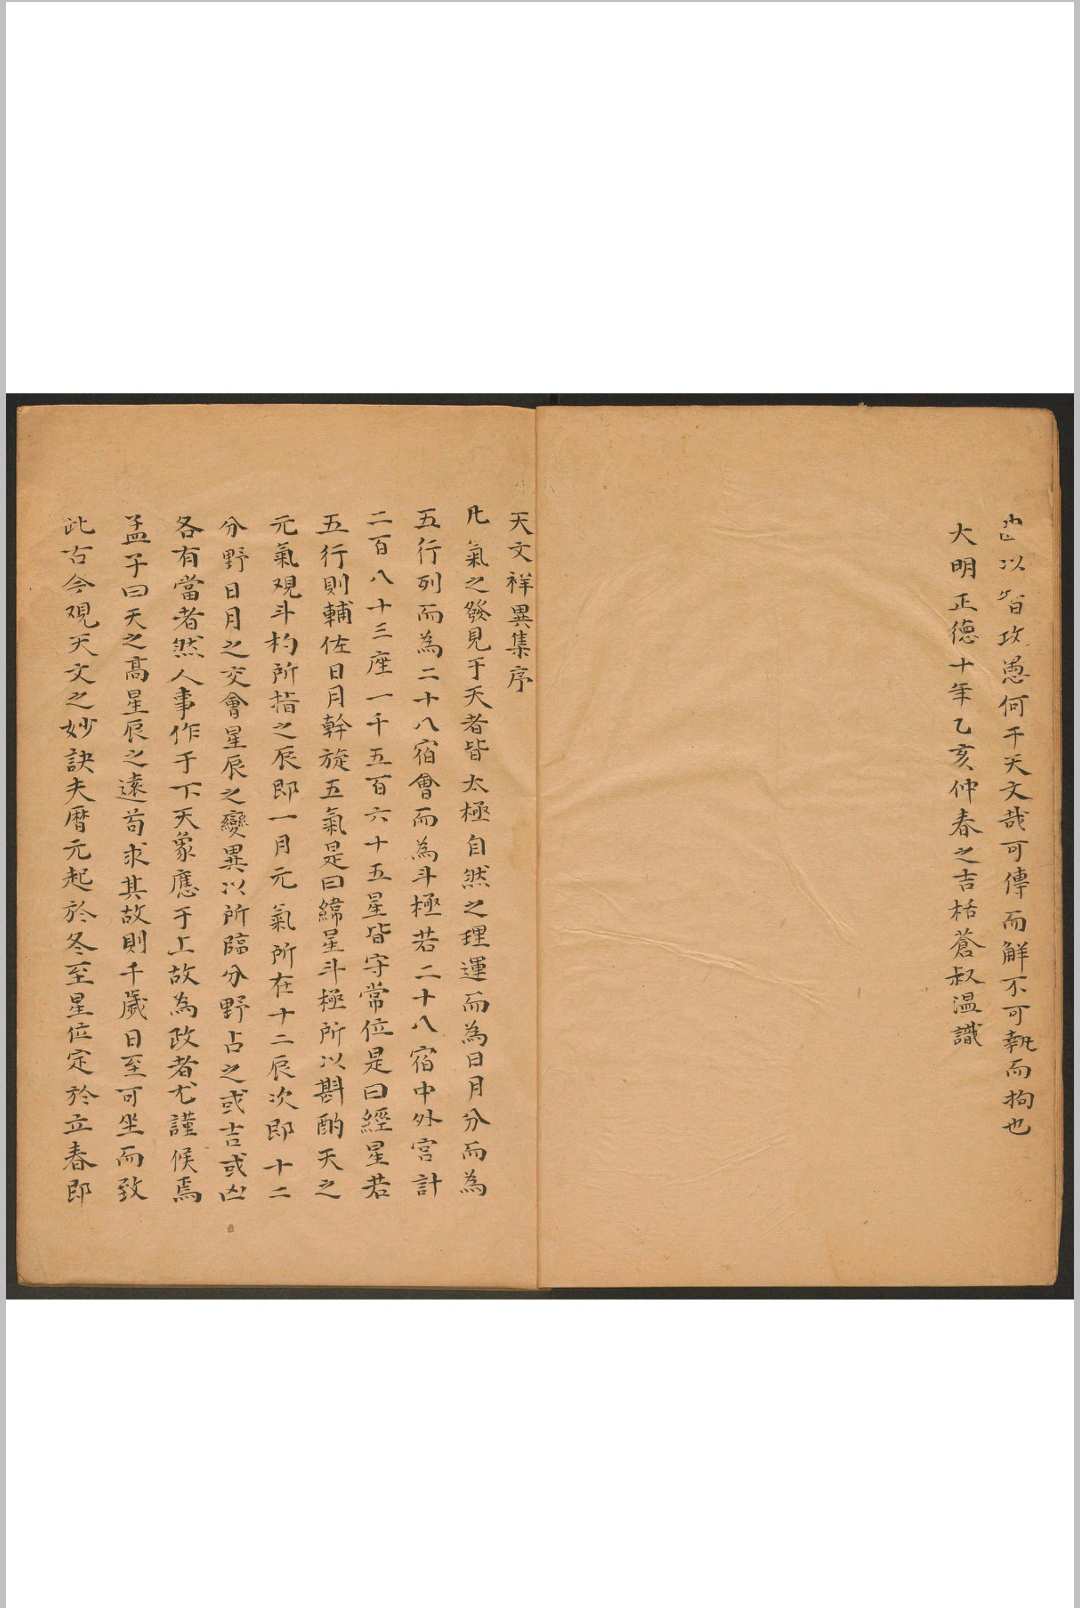 以皆攻愚何干天文哉可傳而解不可執而拘也
大明正德十年乙亥仲春之吉栝蒼叔温識
天文祥異集序
凡氣之發見于天者皆太極自然之理運而為日月分而為
五行列而為二十八宿會而為斗極若二十八宿中外宮計
二百八十三座一千五百六十五星皆守常位是曰經星若
五行則輔佐日月斡旋五氣是曰緯星斗極所以斟酌天之
元氣观斗杓所指之辰即一月元氣所在十二辰次即十二
分野日月之交會星辰之變異以所臨分野占之或吉或凶
各有當者然人事作于下天象應于上故為政者尤謹候焉
孟子曰天之髙星辰之遠苟求其故則千歲日至可坐而致
此古今观天文之妙訣夫曆元起於冬至星位定於立春即